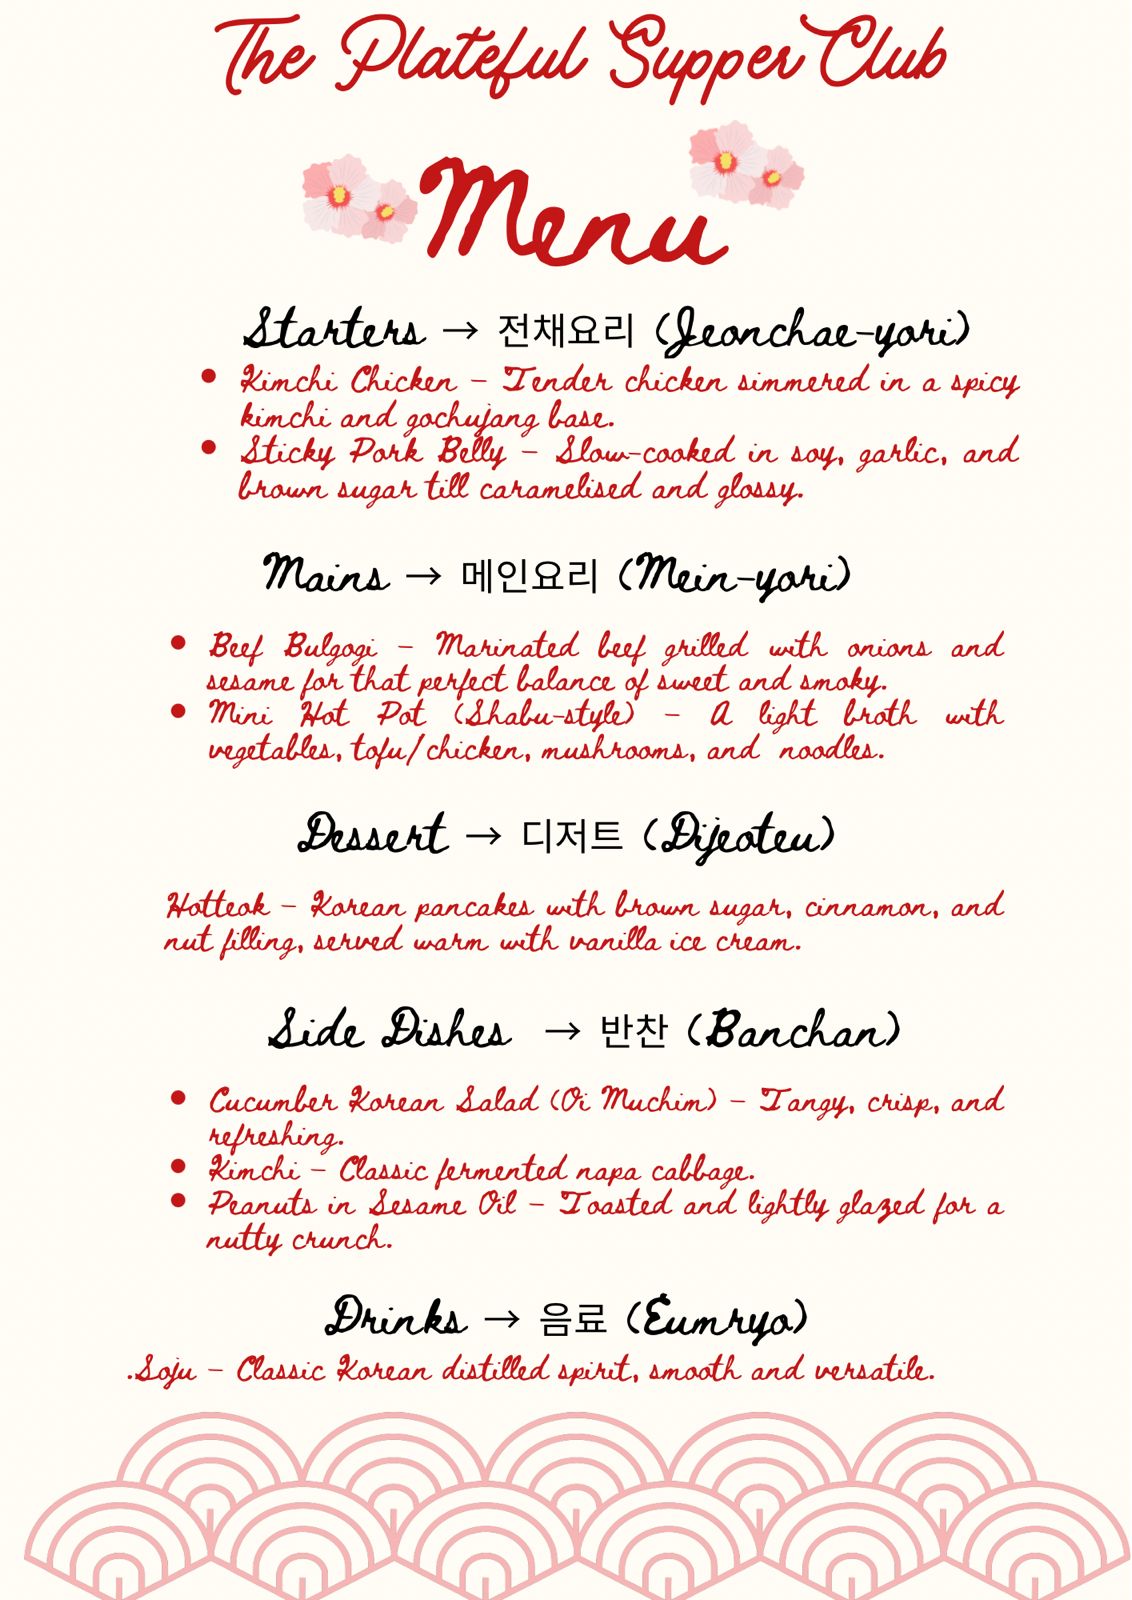 The Plateful Supper Club
Menu
Starters → 전채요리 (Jeonchae-yori)
• Kimchi Chicken – Tender chicken simmered in a spicy
kimchi and gochujang base.
• Sticky Pork Belly – Slow-cooked in soy, garlic, and
brown sugar till caramelised and glossy.
Mains → 메인요리 (Mein-yori)
• Beef Bulgogi – Marinated beef grilled with onions and
sesame for that perfect balance of sweet and smoky.
• Mini Hot Pot (Shabu-style) – A light broth with
vegetables, tofu/chicken, mushrooms, and noodles.
Dessert → 디저트 (Dijeoteu)
Hotteok – Korean pancakes with brown sugar, cinnamon, and
nut filling, served warm with vanilla ice cream.
Side Dishes → 반찬 (Banchan)
• Cucumber Korean Salad (Oi Muchim) – Tangy, crisp, and
refreshing.
• Kimchi – Classic fermented napa cabbage.
• Peanuts in Sesame Oil – Toasted and lightly glazed for a
nutty crunch.
Drinks → 음료 (Eumryo)
.Soju – Classic Korean distilled spirit, smooth and versatile.